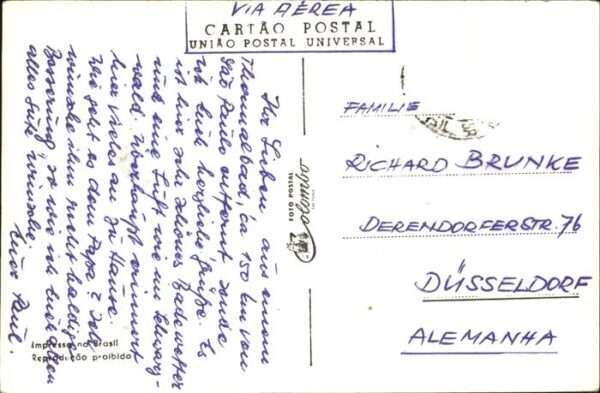 VIA AÉREA
CARTÃO POSTAL
UNIÃO POSTAL UNIVERSAL
Ihr Lieben aus einem
Thermalbad, ca 150 km von
São Paulo entfernt sende
ich Euch herzliche Grüße. Es
ist hier sehr schönes Badewetter
und eine Luft wie im Schwarz-
wald. Überhaupt erinnert
hier Vieles an zu Hause.
Wie geht es dem Papa? Ich
wünsche ihm recht baldige
Besserung, so wie ich Euch allen
alles Gute wünsche.
Euer Paul.
FOTO POSTAL
Colombo
Impresso no Brasil
Reprodução proibida
FAMILIE
RICHARD BRUNKE
DERENDORFERSTR. 76
DÜSSELDORF
ALEMANHA